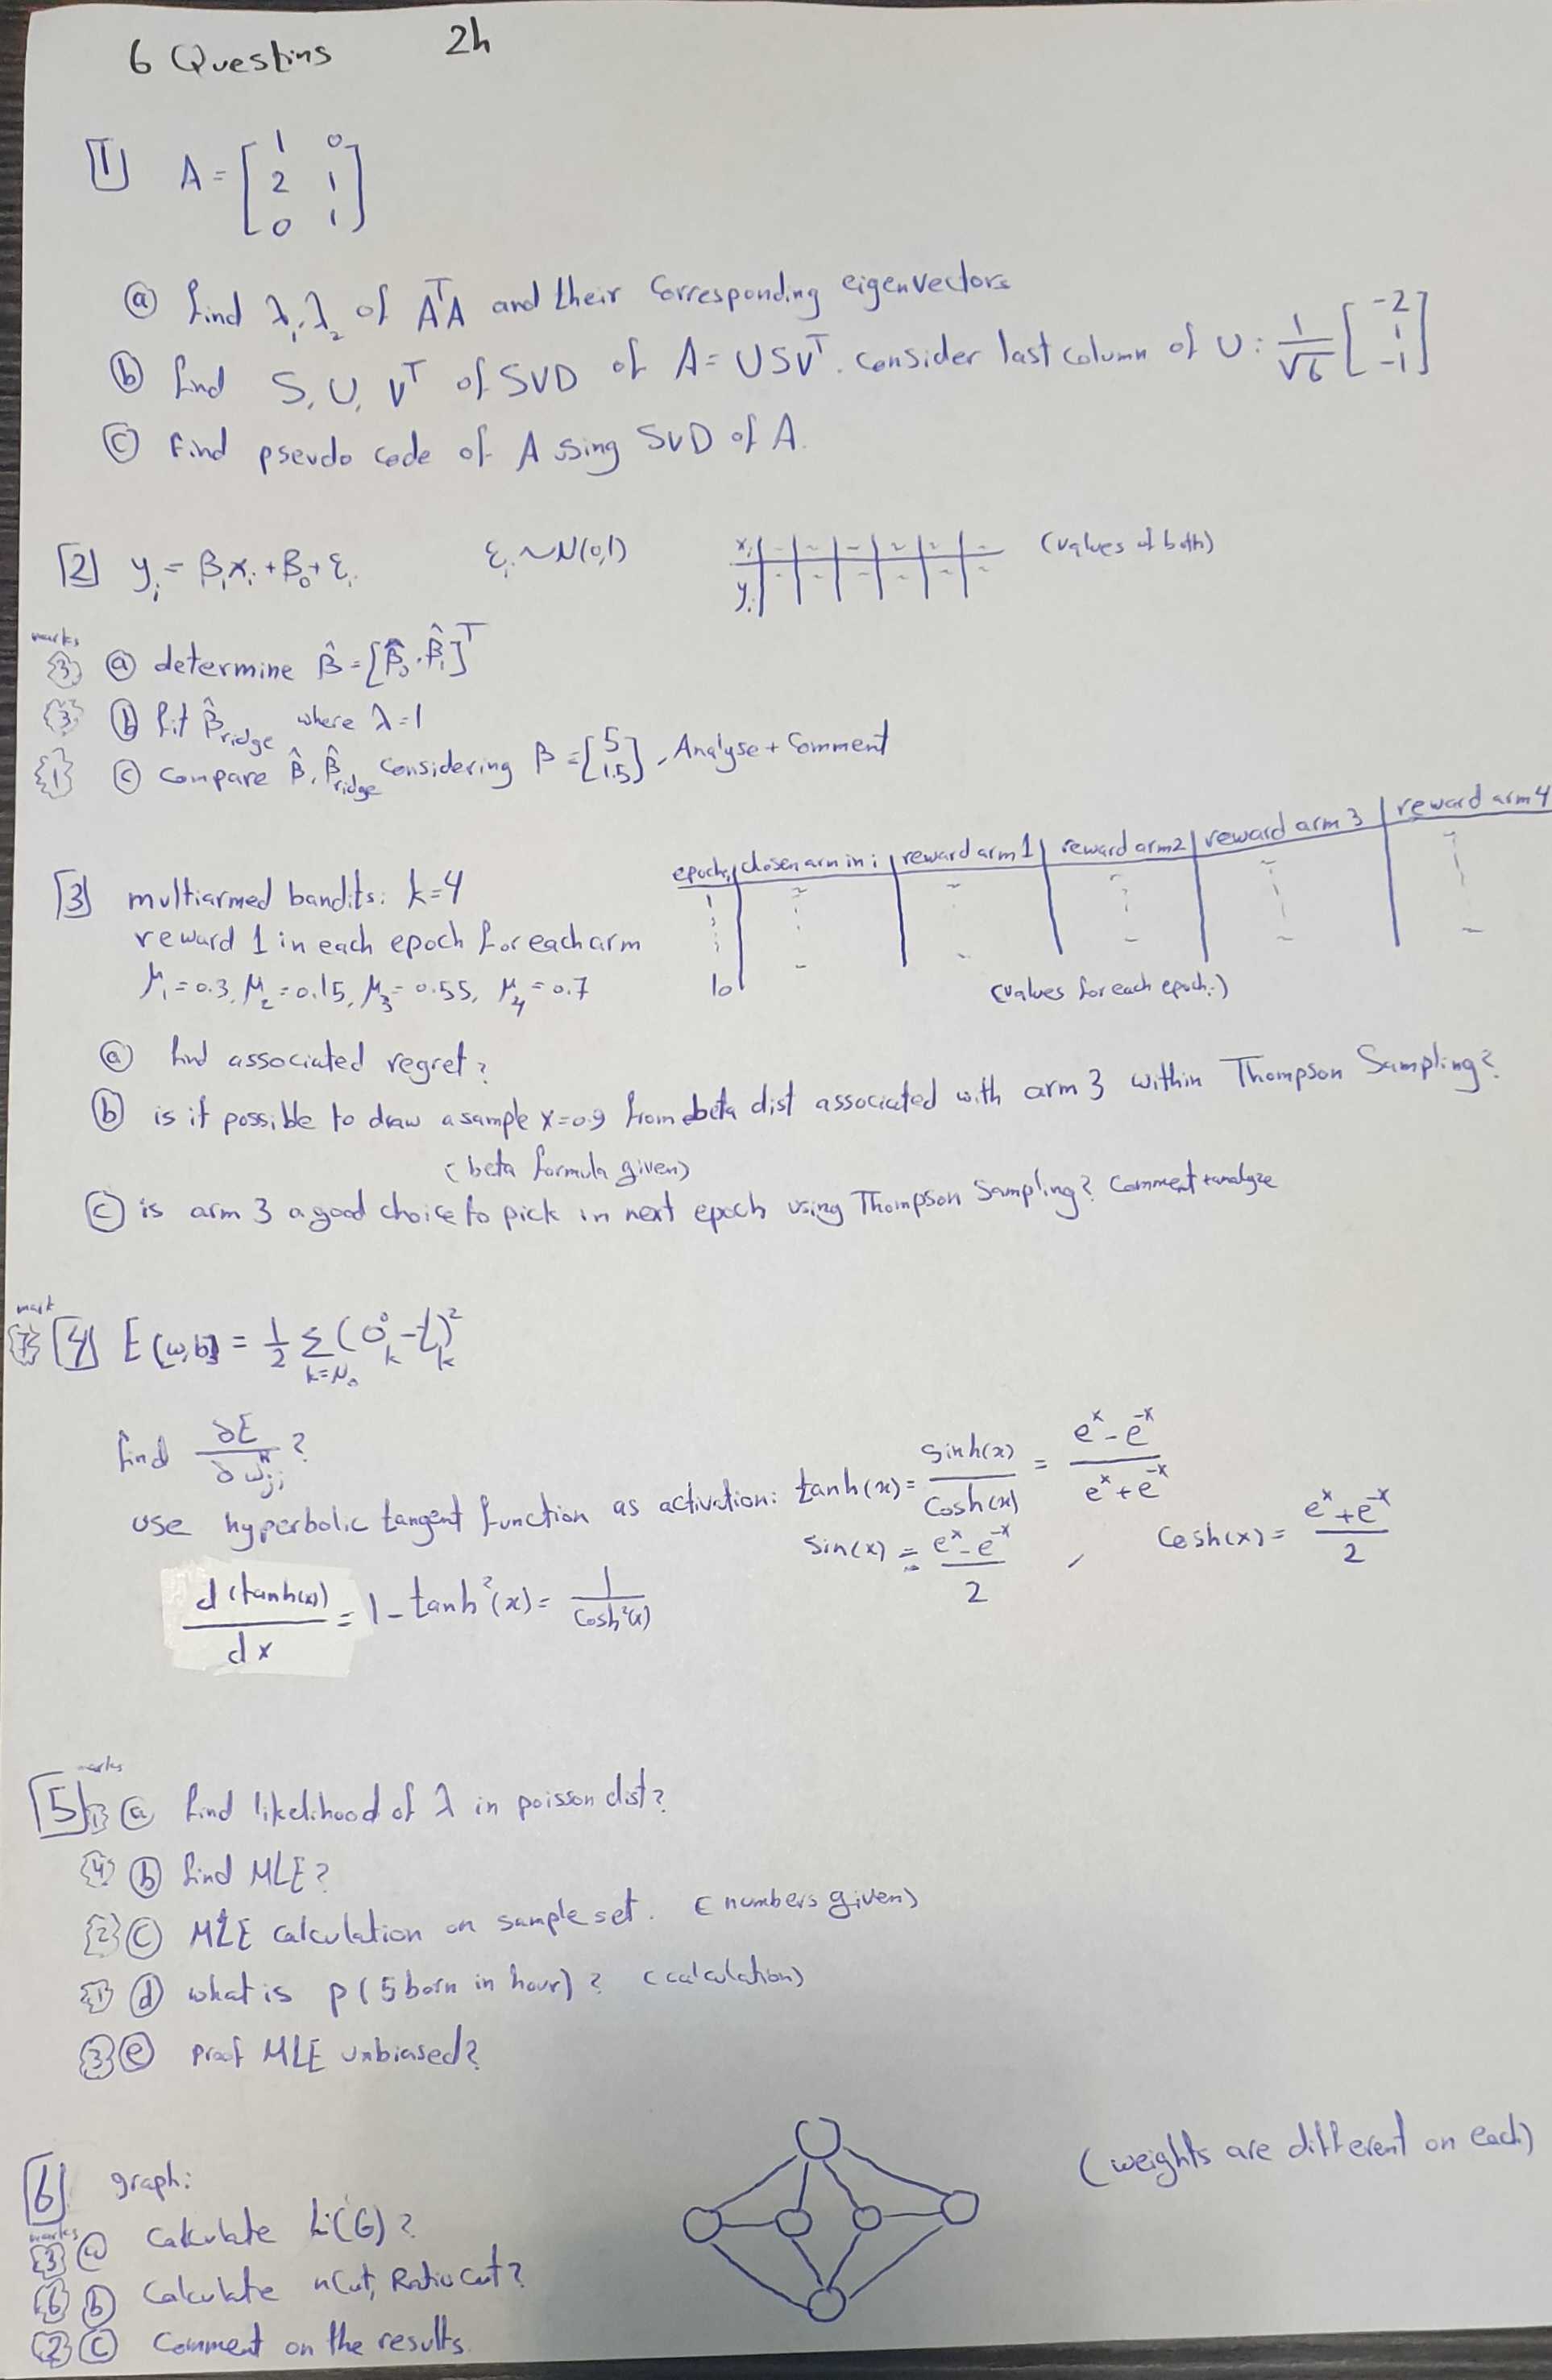 6 Questins 2h
[1] A = [1 0; 2 1; 0 1]
ⓐ find λ₁, λ₂ of AᵀA and their corresponding eigenvectors
ⓑ find S, U, Vᵀ of SVD of A = USVᵀ. consider last column of U: 1/√6 [-2; 1; -1]
ⓒ Find pseudo code of A using SVD of A.
[2] yᵢ = β₁xᵢ + β₀ + εᵢ εᵢ ~ N(0,1) xᵢ yᵢ (values of both)
marks
{3} ⓐ determine β̂ = [β̂₀, β̂₁]ᵀ
{3} ⓑ fit β̂ridge where λ=1
{1} ⓒ Compare β̂, β̂ridge Considering β = [5; 1.5], Analyse + Comment
epochᵢ | chosen arm in i | reward arm 1 | reward arm2 | reward arm 3 | reward arm 4
1
10
[3] multiarmed bandits: k=4
reward 1 in each epoch for each arm
μ₁=0.3, μ₂=0.15, μ₃=0.55, μ₄=0.7 (values for each epoch:)
ⓐ find associated regret?
ⓑ is it possible to draw a sample x=0.9 from beta dist associated with arm 3 within Thompson Sampling?
(beta formula given)
ⓒ is arm 3 a good choice to pick in next epoch using Thompson Sampling? Comment + analyze
mark
{7} [4] E(w,b) = 1/2 Σ k=N₀ (O°ₖ - tₖ)²
find ∂E/∂w ?
use hyperbolic tangent function as activation: tanh(x) = sinh(x)/cosh(x) = (eˣ - e⁻ˣ)/(eˣ + e⁻ˣ)
sin(x) = (eˣ - e⁻ˣ)/2 , Cosh(x) = (eˣ + e⁻ˣ)/2
d(tanh(x))/dx = 1 - tanh²(x) = 1/cosh²(x)
marks
[5] {1} ⓐ find likelihood of λ in poisson dist?
{4} ⓑ find MLE?
{2} ⓒ MLE calculation on sample set. (numbers given)
{1} ⓓ what is p(5 born in hour)? (calculation)
{3} ⓔ proof MLE unbiased?
[6] graph: (weights are different on each)
marks
{3} ⓐ Calculate L(G)?
{6} ⓑ Calculate nCut, RatioCut?
{2} ⓒ Comment on the results.